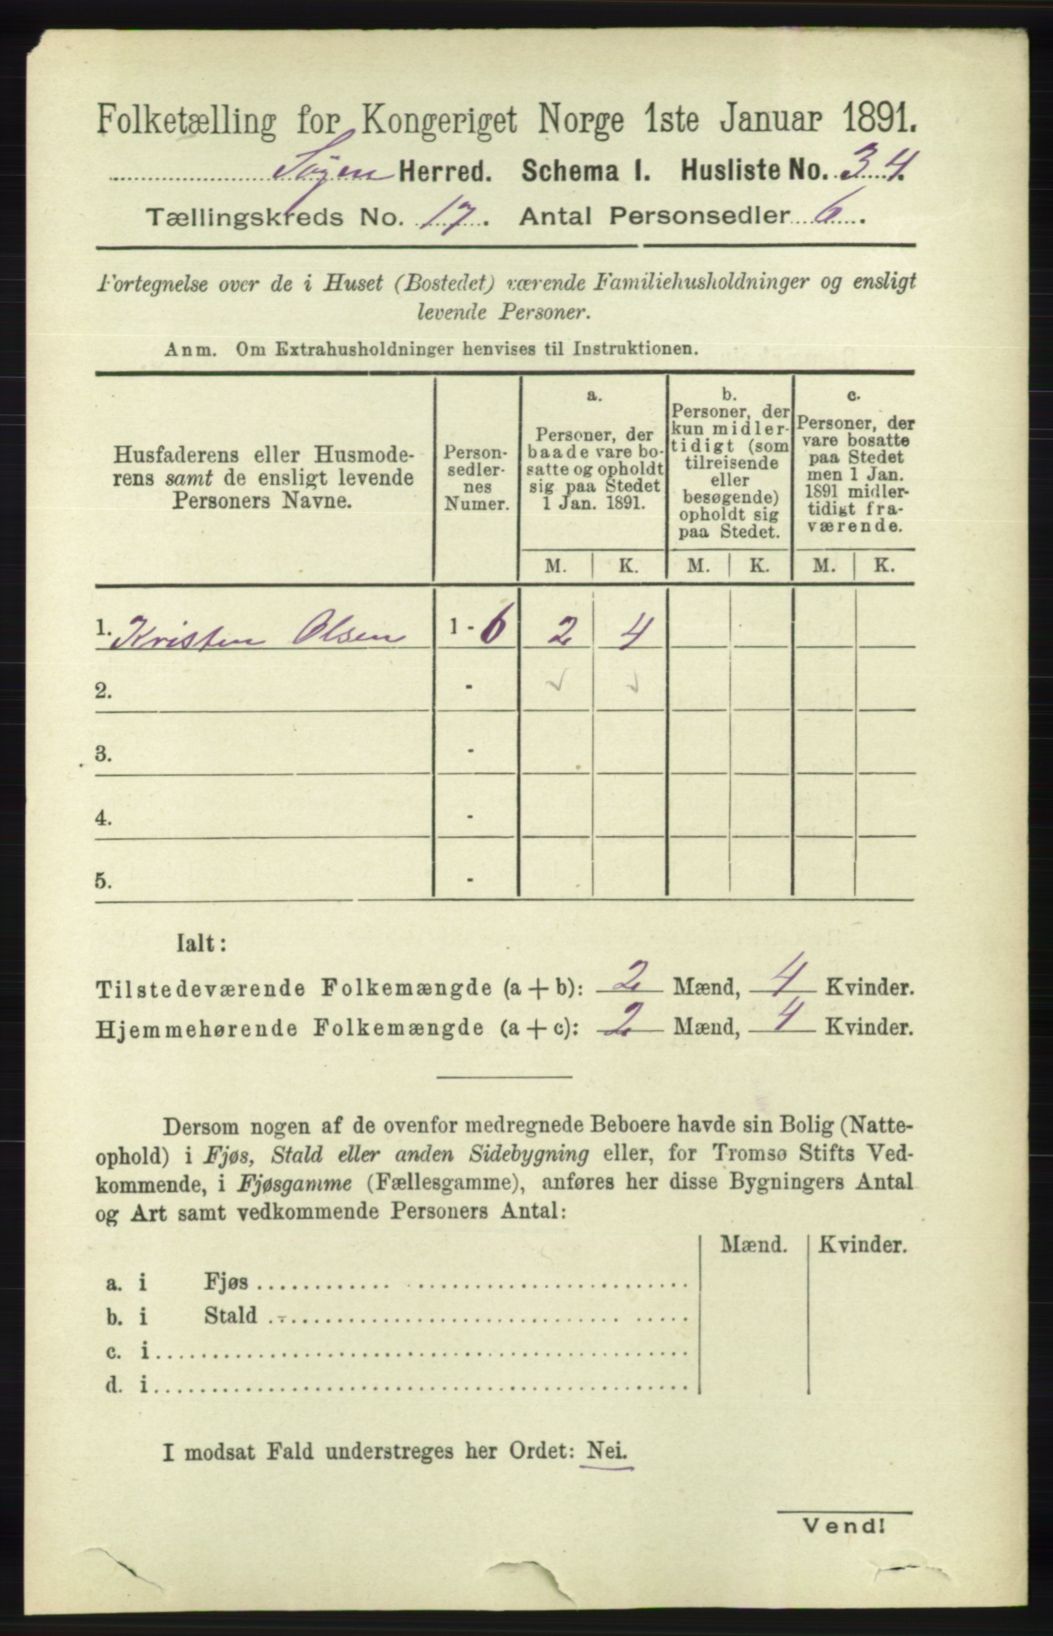 Folketælling for Kongeriget Norge 1ste Januar 1891.
Søgen Herred. Schema I. Husliste No. 34.
Tællingskreds No. 17. Antal Personsedler 6.
Fortegnelse over de i Huset (Bostedet) værende Familiehusholdninger og ensligt
levende Personer.
Anm. Om Extrahusholdninger henvises til Instruktionen.
Husfaderens eller Husmode-
rens samt de ensligt levende
Personers Navne.
Person-
sedler-
nes
Numer.
a.
Personer, der
baade vare bo-
satte og opholdt
sig paa Stedet
1 Jan. 1891.
b.
Personer, der
kun midler-
tidigt (som
tilreisende
eller
besøgende)
opholdt sig
paa Stedet.
c.
Personer, der
vare bosatte
paa Stedet
men 1 Jan.
1891 midler-
tidigt fra-
værende.
M. K. M. K. M. K.
1. Kristen Olsen 1 - 6 2 4
2. -
3. -
4. -
5. -
Ialt:
Tilstedeværende Folkemængde (a + b): 2 Mænd, 4 Kvinder.
Hjemmehørende Folkemængde (a + c): 2 Mænd, 4 Kvinder.
Dersom nogen af de ovenfor medregnede Beboere havde sin Bolig (Natte-
ophold) i Fjøs, Stald eller anden Sidebygning eller, for Tromsø Stifts Ved-
kommende, i Fjøsgamme (Fællesgamme), anføres her disse Bygningers Antal
og Art samt vedkommende Personers Antal:
Mænd. Kvinder.
a. i Fjøs
b. i Stald
c. i
d. i
I modsat Fald understreges her Ordet: Nei.
Vend!